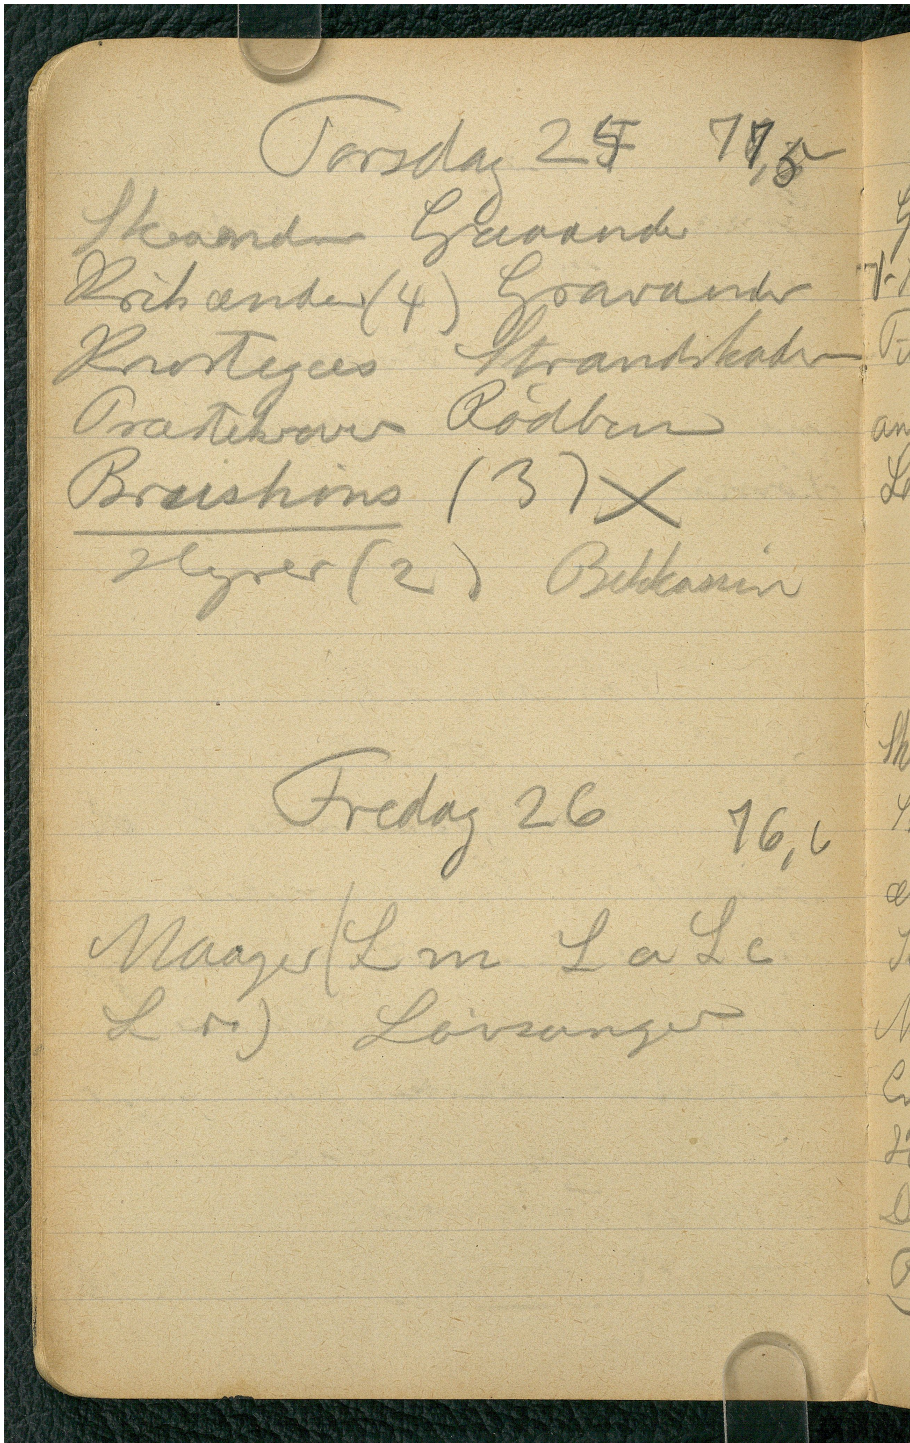 Torsdag 25 77,5
Skeænder Graaand
Krikænder (4) Gravænder
Knortegæs Strandskader
Præstekraver Rødben
Brushøns (3) X
Hyrer (2) Bekkasin
Fredag 26 76,
Maager (L m L a L c
L r.) Løvsanger